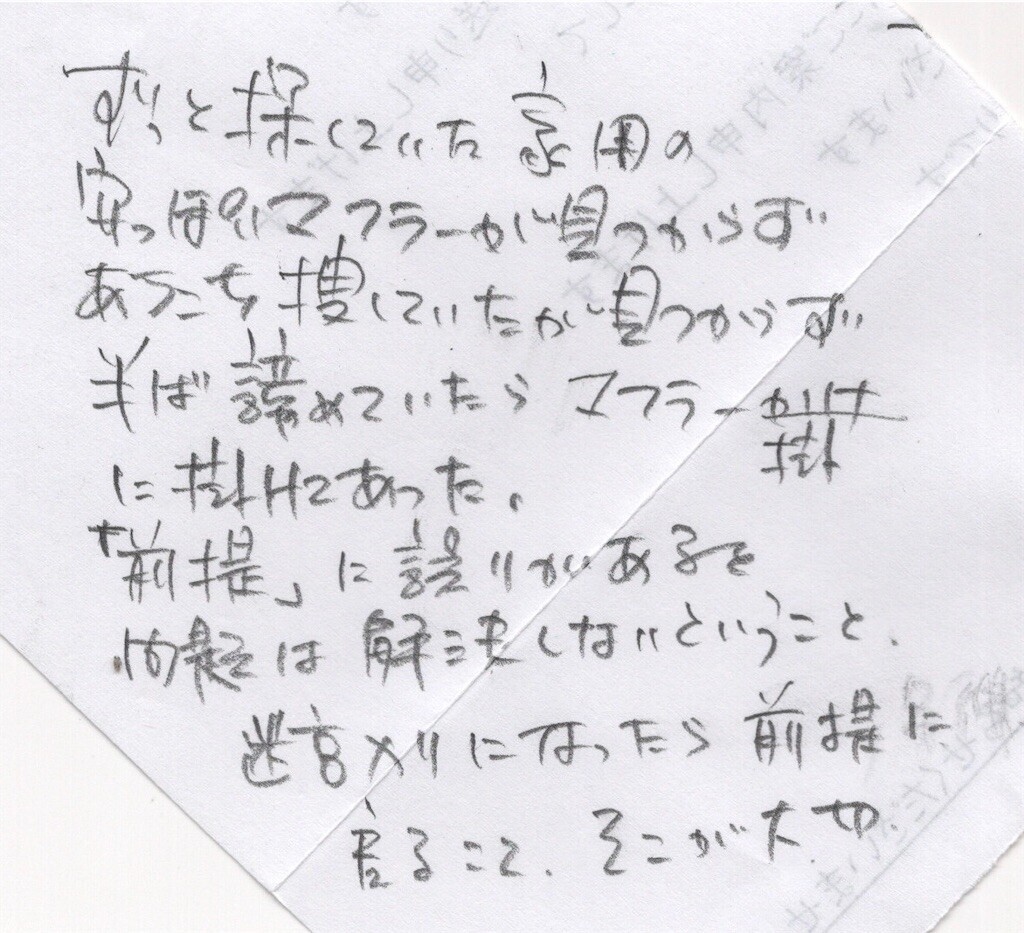 ずっと探していた家用の
安っぽいマフラーが見つからず
あちこち捜していたが見つからず
半ば諦めていたらマフラーかけ
掛
に掛けてあった。
「前提」に誤りがあると
問題は解決しないということ.
迷宮入りになったら前提に
戻ること.そこが大切